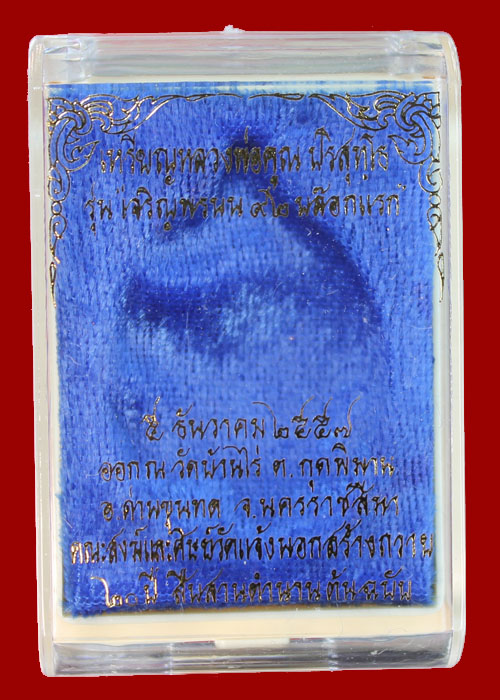 เหรียญหลวงพ่อคูณ ปริสุทฺโธ
รุ่น "เจริญพรบน ๙๒ บล๊อกแรก"
๕ ธันวาคม ๒๕๕๗
ออก ณ วัดบ้านไร่ ต.กุดพิมาน
อ.ด่านขุนทด จ.นครราชสีมา
คณะสงฆ์และศิษย์วัดแจ้งนอกสร้างถวาย
๒๐ ปี สืบสานตำนาน ต้นฉบับ